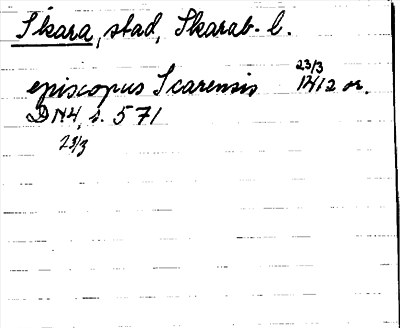 Skara, stad, Skarab. l.
23/3
episcopus Scarensis 1412 or.
DN4, s. 571
23/3